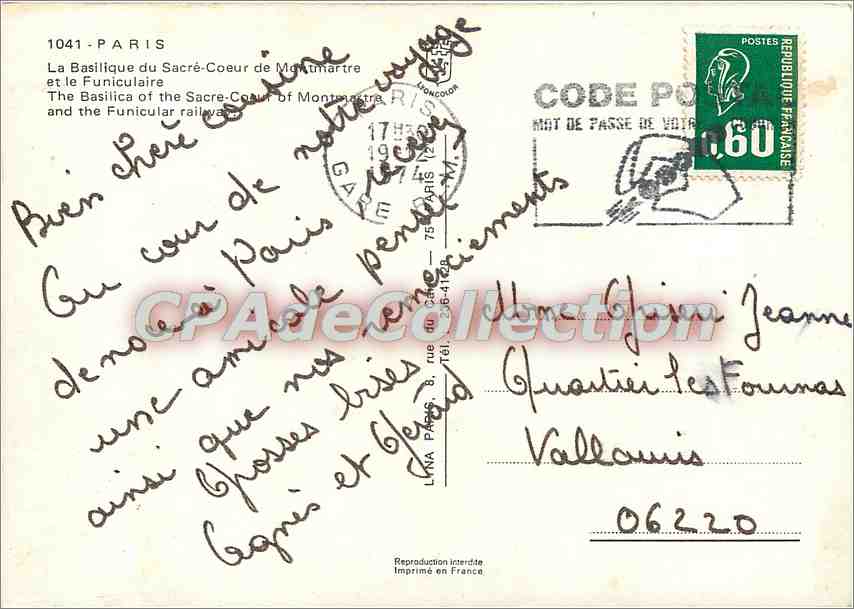 1041 - PARIS
La Basilique du Sacré-Coeur de Montmartre
et le Funiculaire
The Basilica of the Sacre-Coeur of Montmartre
and the Funicular railway.
Bien chère cousine
Au cour de notre voyage
de noce à Paris recevez
une amicale pensée
ainsi que nos remerciements
Grosses bises
Agnès et Gérard
LYNA PARIS, 8, rue du Caire — 75 PARIS (2
Tél. 236-41-28
PARIS
17H
19
74
GARE
CODE POSTAL
MOT DE PASSE DE VOTRE
POSTES
REPUBLIQUE FRANÇAISE
0,60
Mme Jeanne
Quartier les Fournas
Vallauris
06220
Reproduction interdite
Imprimé en France
CPAdeCollection